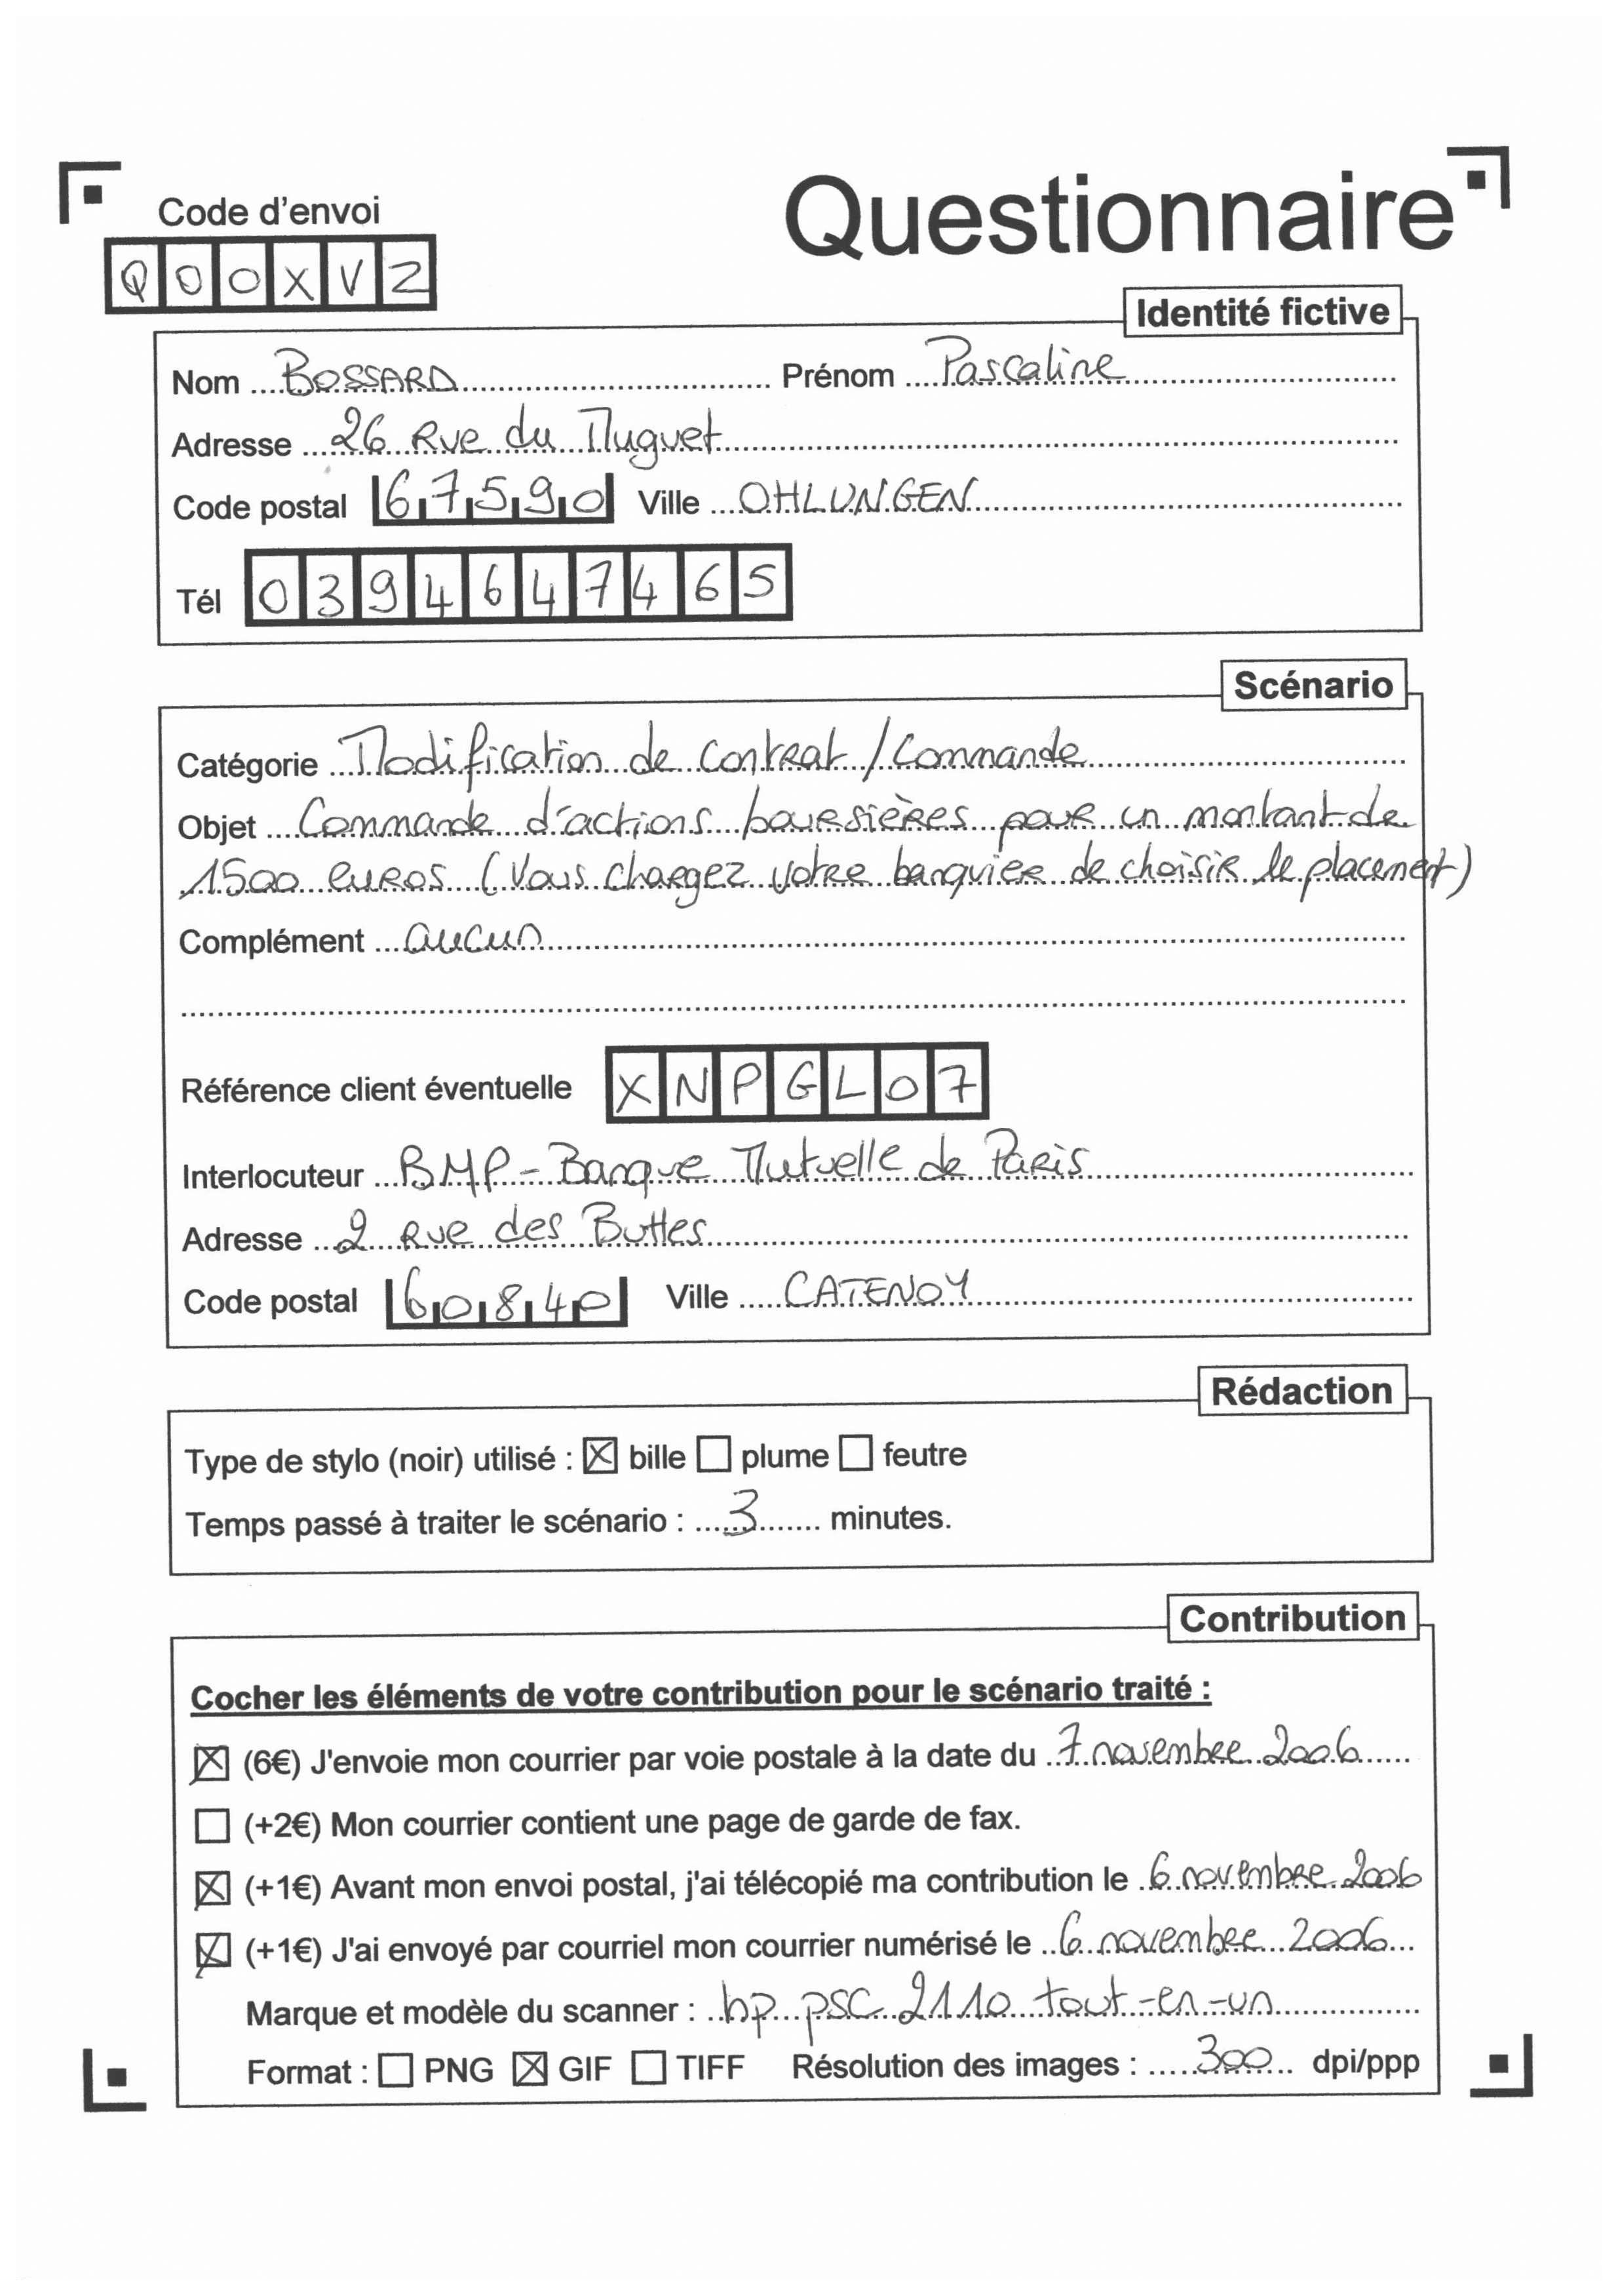 Questionnaire
Code d'envoi
Q00XVZ
Identité fictive
Nom BOSSARD Prénom Pascaline
Adresse 26 Rue du Muguet
Code postal 67590 Ville OHLUNGEN
Tél 0394647465
Scénario
Catégorie Modification de contrat / Commande
Objet Commande d'actions boursières pour un montant de
1500 euros (Vous chargez votre banquier de choisir le placement)
Complément aucun
Référence client éventuelle XNPGL07
Interlocuteur BMP - Banque Mutuelle de Paris
Adresse 2 Rue des Buttes
Code postal 60840 Ville CATENOY
Rédaction
Type de stylo (noir) utilisé : ☒ bille ☐ plume ☐ feutre
Temps passé à traiter le scénario : 3 minutes.
Contribution
Cocher les éléments de votre contribution pour le scénario traité :
☒ (6€) J'envoie mon courrier par voie postale à la date du 7 novembre 2006
☐ (+2€) Mon courrier contient une page de garde de fax.
☒ (+1€) Avant mon envoi postal, j'ai télécopié ma contribution le 6 novembre 2006
☒ (+1€) J'ai envoyé par courriel mon courrier numérisé le 6 novembre 2006
Marque et modèle du scanner : hp psc 2110 tout-en-un
Format : ☐ PNG ☒ GIF ☐ TIFF Résolution des images : 300 dpi/ppp